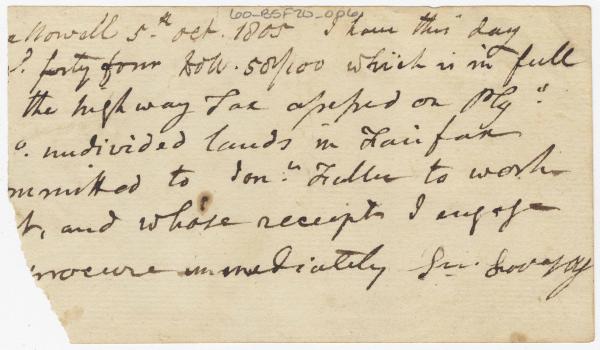 60-BSF20_096
e Nowell 5.th Oct. 1805 I have this day
forty four Doll. 58/100 which is in full
the highway Tax assessed on Ply.o
o. undivided lands in Fairfax
mmitted to Jon.n Fuller to work
t, and whose receipts I engage
procure immediately Lovejoy